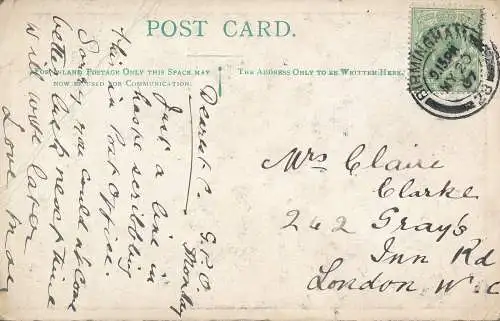 POST CARD.
FOR INLAND POSTAGE ONLY THIS SPACE MAY
NOW BE USED FOR COMMUNICATION.
THE ADDRESS ONLY TO BE WRITTEN HERE.
BIRMINGHAM
9.15PM
07
Mrs Claire
Clarke
242 Gray's
Inn Rd
London W.C
G.P.O
Monday
Dearest C.
Just a line in
haste scribbling
this in Post Office.
Sorry you could not come
better luck next time
will write later
Love